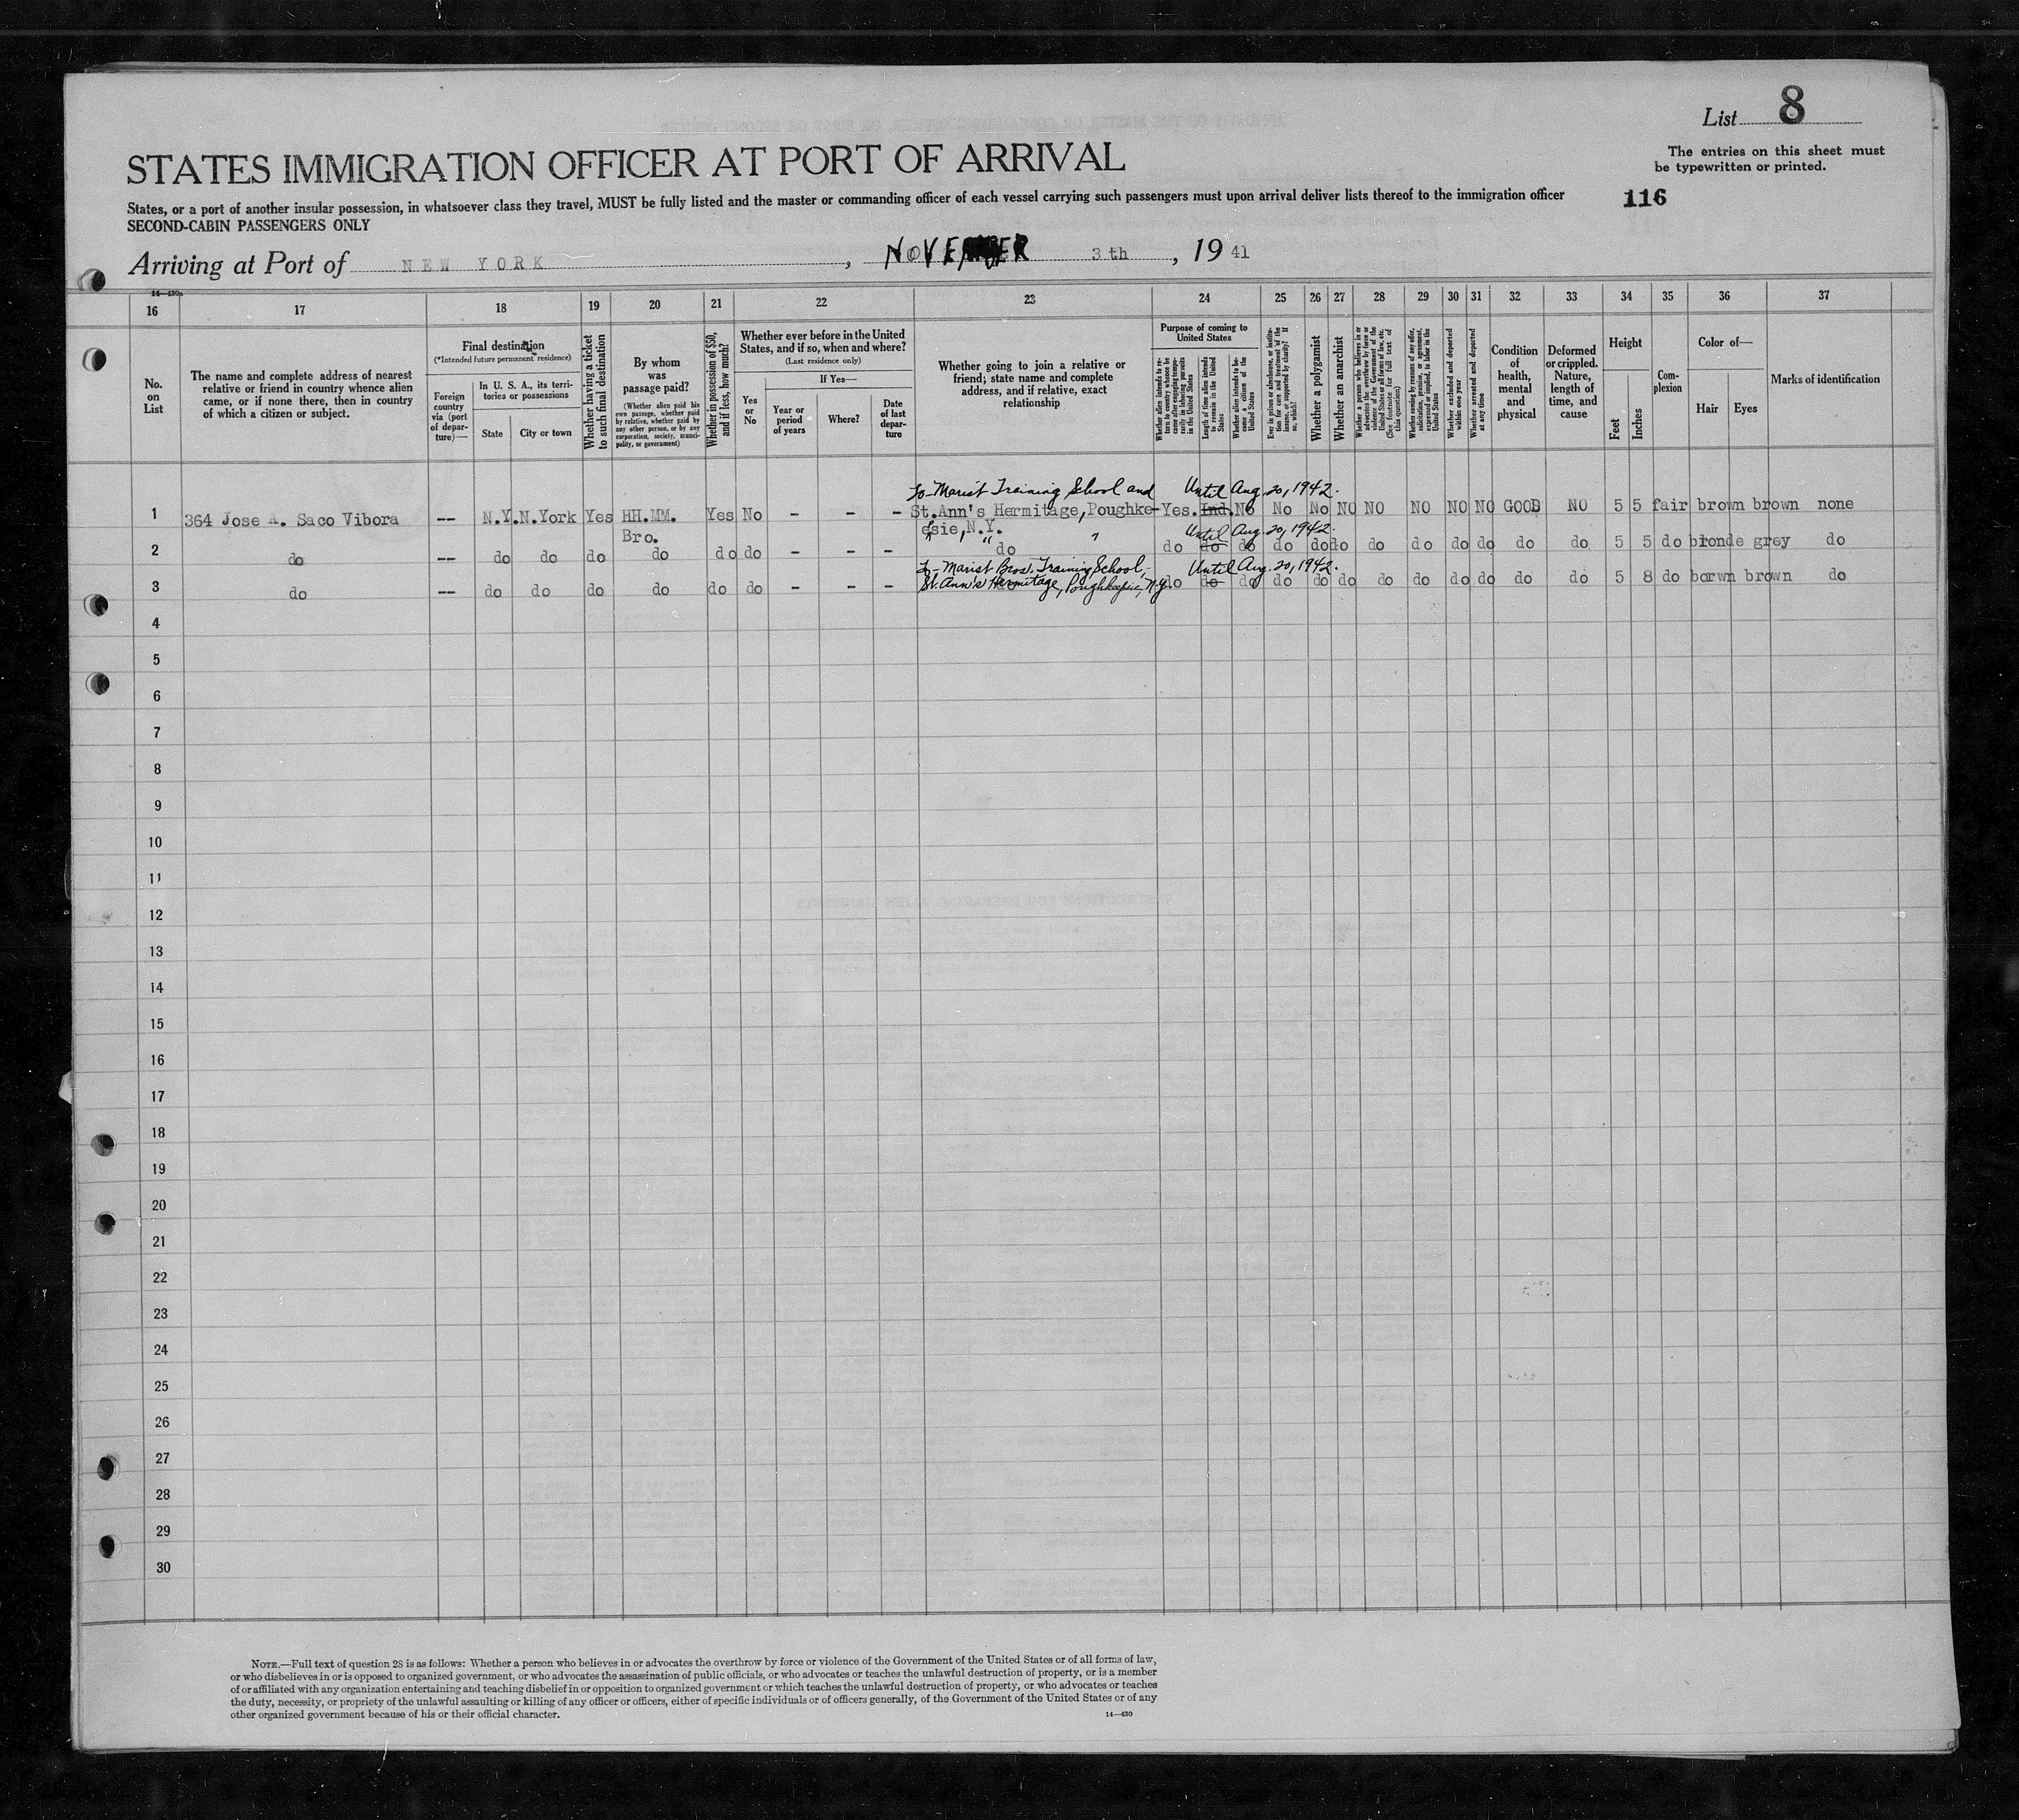 List 8
The entries on this sheet must
be typewritten or printed.
STATES IMMIGRATION OFFICER AT PORT OF ARRIVAL
116
States, or a port of another insular possession, in whatsoever class they travel, MUST be fully listed and the master or commanding officer of each vessel carrying such passengers must upon arrival deliver lists thereof to the immigration officer
SECOND-CABIN PASSENGERS ONLY
Arriving at Port of NEW YORK, NOVEMBER 3th, 19 41
14—430a
16 17 18 19 20 21 22 23 24 25 26 27 28 29 30 31 32 33 34 35 36 37
No.
on
List
The name and complete address of nearest
relative or friend in country whence alien
came, or if none there, then in country
of which a citizen or subject.
Final destination
(*Intended future permanent residence)
Foreign
country
via (port
of depar-
ture)—
In U. S. A., its terri-
tories or possessions
State
City or town
Whether having a ticket
to such final destination
By whom
was
passage paid?
(Whether alien paid his
own passage, whether paid
by relative, whether paid by
any other person, or by any
corporation, society, munici-
pality, or government)
Whether in possession of $50,
and if less, how much?
Whether ever before in the United
States, and if so, when and where?
(Last residence only)
Yes
or
No
If Yes—
Year or
period
of years
Where?
Date
of last
depar-
ture
Whether going to join a relative or
friend; state name and complete
address, and if relative, exact
relationship
Purpose of coming to
United States
Whether alien intends to re-
turn to country whence he
came after engaging tempo-
rarily in laboring pursuits
in the United States
Length of time alien intends
to remain in the United
States
Whether alien intends to be-
come a citizen of the
United States
Ever in prison or almshouse, or institu-
tion for care and treatment of the
insane, or supported by charity? If
so, which?
Whether a polygamist
Whether an anarchist
Whether a person who believes in or
advocates the overthrow by force or
violence of the Government of the
United States or all forms of law, etc.
(See footnote for full text of
this question)
Whether coming by reasons of any offer,
solicitation, promise, or agreement,
expressed or implied, to labor in the
United States
Whether excluded and deported
within one year
Whether arrested and deported
at any time
Condition
of
health,
mental
and
physical
Deformed
or crippled.
Nature,
length of
time, and
cause
Height
Feet
Inches
Com-
plexion
Color of—
Hair
Eyes
Marks of identification
To-Marist Training School and Until Aug. 20, 1942.
1 364 Jose A. Saco Vibora -- N.Y. N.York Yes HH.MM. Yes No - - - St.Ann's Hermitage, Poughke- Yes. Ind. No No No NO NO NO NO NO GOOD NO 5 5 fair brown brown none
Bro. esie, N.Y. Until Aug. 20, 1942.
2 do -- do do do do do do - - - " " do " do do do do do do do do do do do do 5 5 do blonde grey do
To-Marist Bros. Training School, Until Aug. 20, 1942.
3 do -- do do do do do do - - - St. Ann's Hermitage, Poughkeepsie, N.Y. do do do do do do do do do do do do do 5 8 do borwn brown do
4
5
6
7
8
9
10
11
12
13
14
15
16
17
18
19
20
21
22
23
24
25
26
27
28
29
30
NOTE.—Full text of question 28 is as follows: Whether a person who believes in or advocates the overthrow by force or violence of the Government of the United States or of all forms of law,
or who disbelieves in or is opposed to organized government, or who advocates the assassination of public officials, or who advocates or teaches the unlawful destruction of property, or is a member
of or affiliated with any organization entertaining and teaching disbelief in or opposition to organized government or which teaches the unlawful destruction of property, or who advocates or teaches
the duty, necessity, or propriety of the unlawful assaulting or killing of any officer or officers, either of specific individuals or of officers generally, of the Government of the United States or of any
other organized government because of his or their official character.
14—430